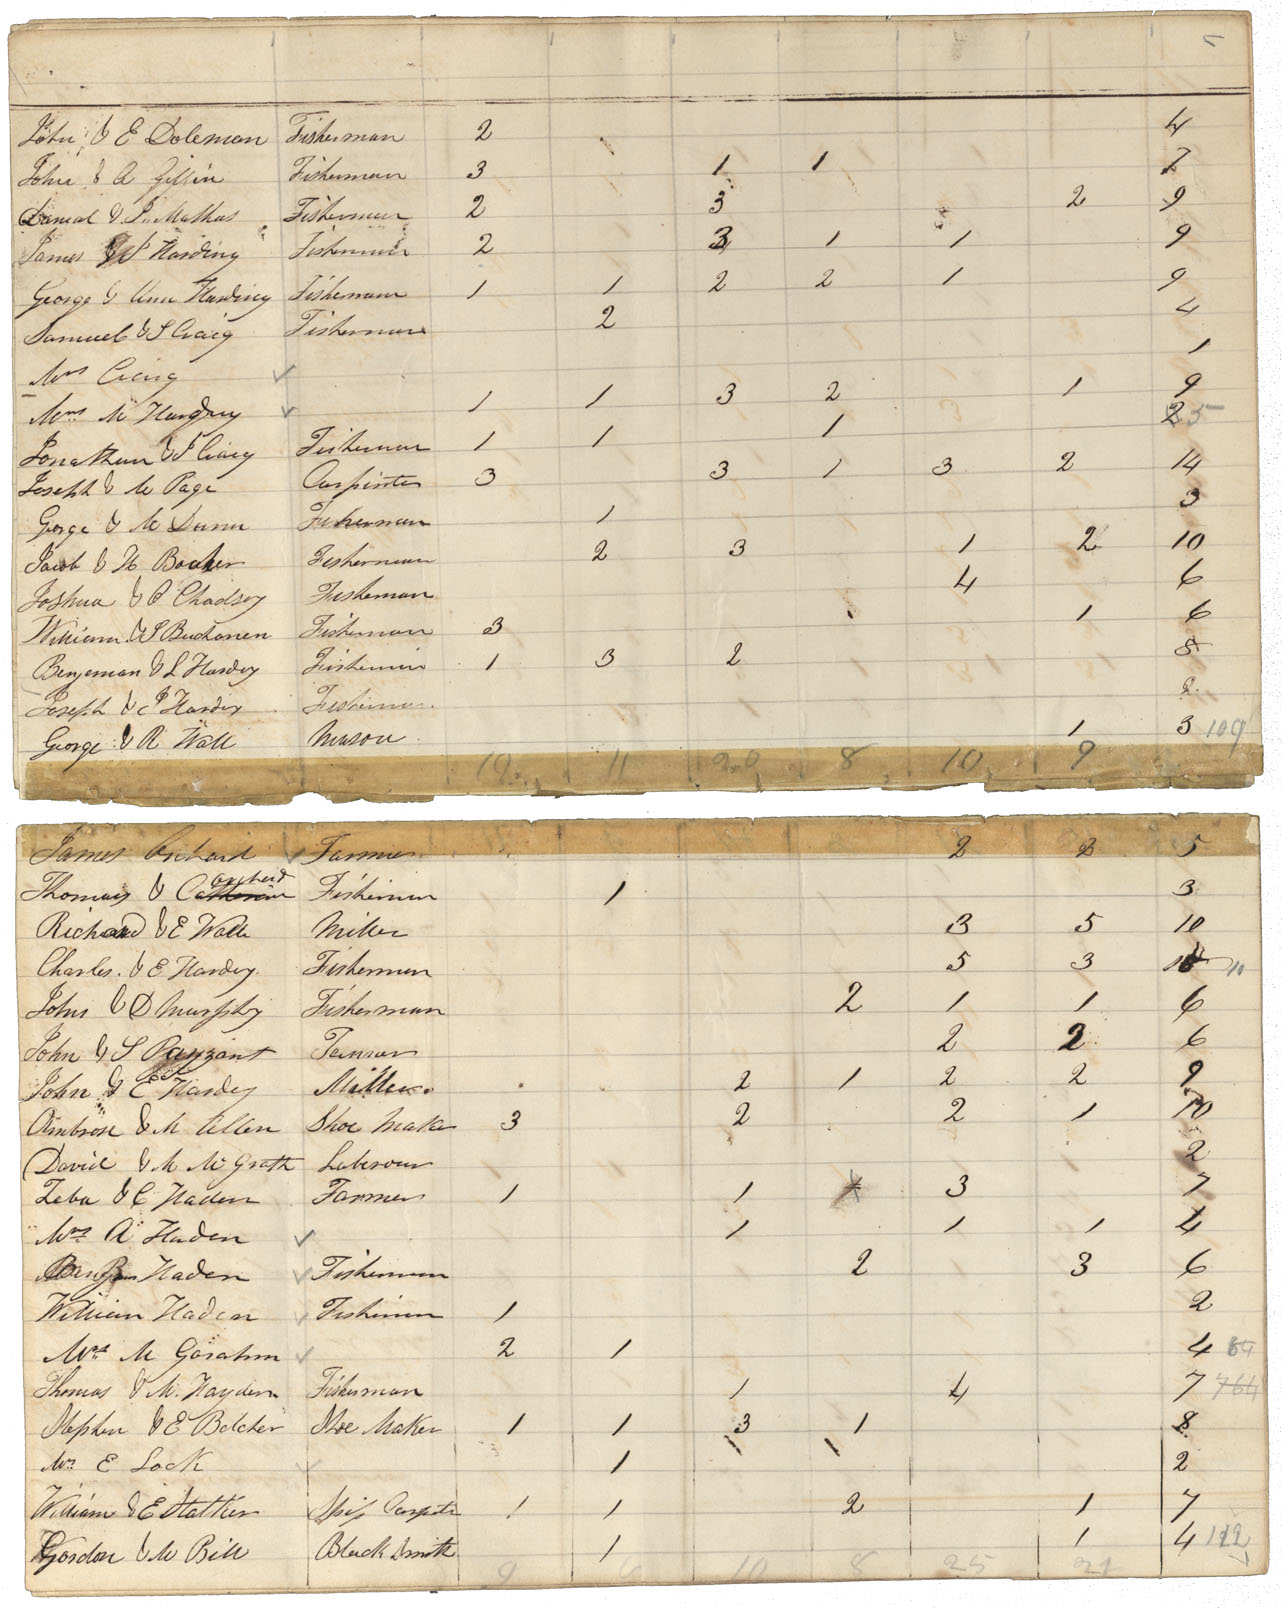 5
John & E Doleman Fisherman 2 4
John & A Giffin Fisherman 3 1 1 7
Danial & P. Mathas Fisherman 2 3 2 9
James & P Harding Fisherman 2 3 1 1 9
George & Ann Harding Fisherman 1 1 2 2 1 9
Samuel & S Craig Fisherman 2 4
Mrs Craig ✓ 1
Mrs M ✓ 1 1 3 2 1 9
Jonathan & P Craig Fisherman 1 1 1 5
Joseph & M Page Carpinter 3 3 1 3 2 14
Gorge & M Dunn Fisherman 1 3
Jacob & H Booker Fisherman 2 3 1 2 10
Joshua & C Chadsey Fisherman 4 6
William & S Buchanen Fisherman 3 1 6
Benjeman & L Hardey Fisherman 1 3 2 8
Joseph & J Hardey Fisherman 2
George & R Wall Mason 1 3 109
19 11 20 8 10 9
James Orchard ✓ Farmer 2 2 5
Thomas & Catherine Orchard Fisherman 1 3
Richard & E Wall Miller 3 5 10
Charles & E Hardey Fisherman 5 3 10
John & D Murphy Fisherman 2 1 1 6
John & S Payzant Tanner 2 2 6
John & E Hardey Miller 2 1 2 2 9
Ambrose & M Allen Shoe Maker 3 2 2 1 10
David & M McGrath Laborour 2
Zeba & C Haden Farmer 1 1 3 7
Mrs A Haden ✓ 1 1 1 4
Benjman Haden ✓ Fisherman 2 3 6
William Haden ✓ Fisherman 1 2
Mrs M Gorahm ✓ 2 1 4
Thomas & M. Hayden Fisherman 1 4 7 764
Stephen & E Belcher Shoe Maker 1 1 3 1 8
Mrs E Lock ✓ 1 2
William & E Ship Carpinter 1 1 2 1 7
Gordon & M Bill Black Smith 1 1 4 112
9 6 10 8 25 21